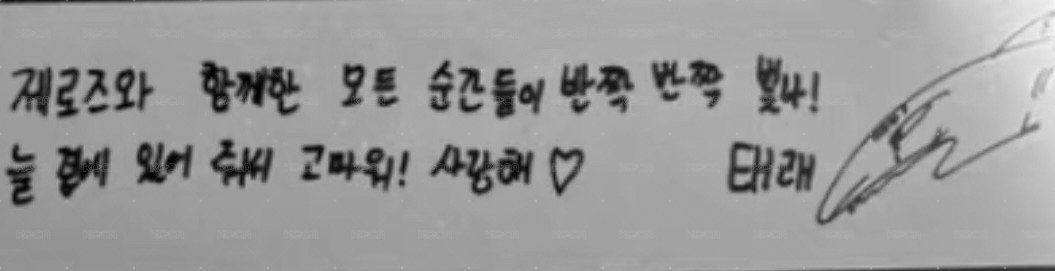 제로즈와 함께한 모든 순간들이 반짝 반짝 빛나!
늘 곁에 있어 줘서 고마워! 사랑해 ♡ 태래